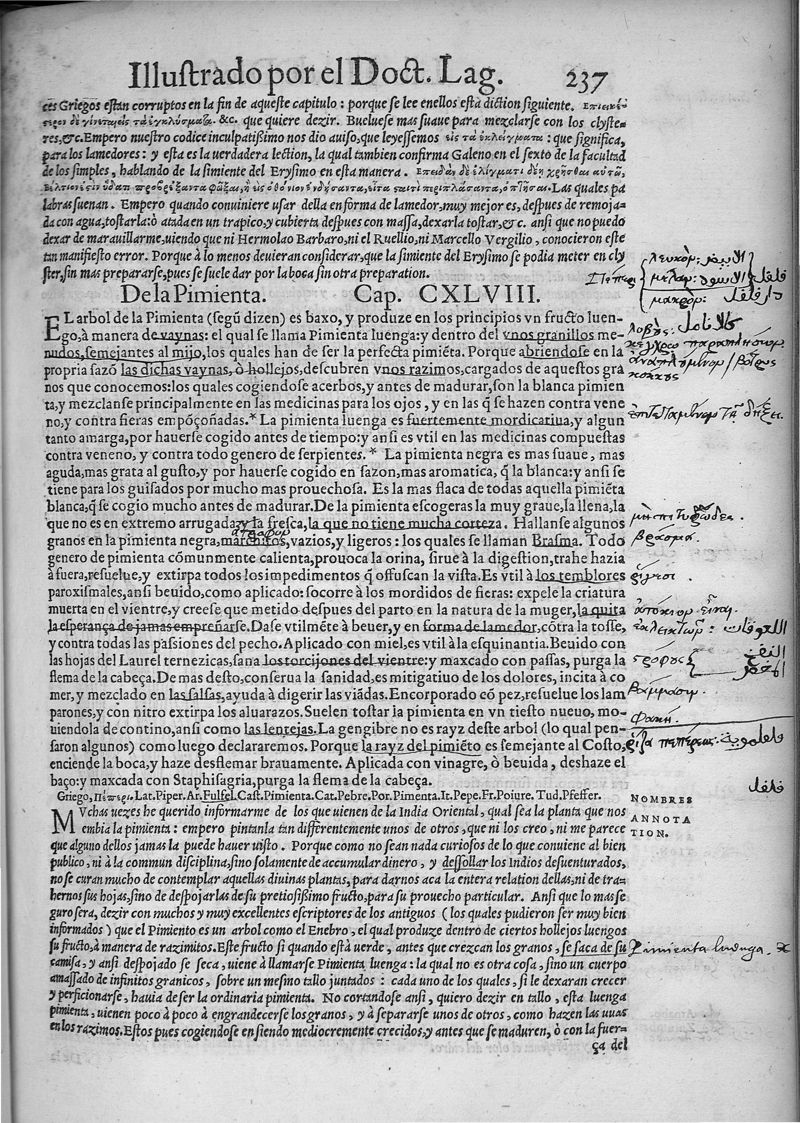 Illustrado por el Doct. Lag. 237
ces Griegos estan corruptos en la fin de aqueste capitulo: porque se lee enellos esta diction siguiente.
&c. que quiere dezir. Bueluese mas suaue para mezclarse con los clyste-
res,&c. Empero nuestro codice inculpatißimo nos dio auiso, que leyessemos εις τα εκλείγματα: que significa,
para los lamedores: y esta es la uerdadera lection, la qual tambien confirma Galeno en el sexto de la facultad
de los simples, hablando de la simiente del Erysimo en esta manera.
Las quales pa
labras suenan. Empero quando conuiniere usar della en forma de lamedor, muy mejor es, despues de remoja-
da con agua, tostarla: ò atada en un trapico, y cubierta despues con massa, dexarla tostar,&c. ansi que no puedo
dexar de marauillarme, uiendo que ni Hermolao Barbaro, ni el Ruellio, ni Marcello Vergilio, conocieron este
tan manifiesto error. Porque à lo menos deuieran considerar, que la simiente del Erysimo se podia meter en cly
ster, sin mas prepararse, pues se suele dar por la boca sin otra preparation.
De la Pimienta. Cap. CXLVIII.
EL arbol de la Pimienta (segũ dizen) es baxo, y produze en los principios vn fructo luen-
go, à manera de vaynas: el qual se llama Pimienta luenga: y dentro del vnos granillos me-
nudos, semejantes al mijo, los quales han de ser la perfecta pimiẽta. Porque abriendose en la
propria sazõ las dichas vaynas, ò hollejos, descubren vnos razimos, cargados de aquestos gra
nos que conocemos: los quales cogiendose acerbos, y antes de madurar, son la blanca pimien
ta, y mezclanse principalmente en las medicinas para los ojos, y en las q̃ se hazen contra vene
no, y contra fieras empõçoñadas.* La pimienta luenga es fuertemente mordicatiua, y algun
tanto amarga, por hauerse cogido antes de tiempo: y ansi es vtil en las medicinas compuestas
contra veneno, y contra todo genero de serpientes.* La pimienta negra es mas suaue, mas
aguda, mas grata al gusto, y por hauerse cogido en sazon, mas aromatica, q̃ la blanca: y ansi se
tiene para los guisados por mucho mas prouechosa. Es la mas flaca de todas aquella pimiẽta
blanca, q̃ se cogio mucho antes de madurar. De la pimienta escogeras la muy graue, la llena, la
que no es en extremo arrugada, y la fresca, la que no tiene mucha corteza. Hallanse algunos
granos en la pimienta negra, marchitos, vazios, y ligeros: los quales se llaman Brasma. Todo
genero de pimienta cõmunmente calienta, prouoca la orina, sirue à la digestion, trahe hazia
à fuera, resuelue, y extirpa todos los impedimentos q̃ offuscan la vista. Es vtil à los temblores
paroxismales, ansi beuido, como aplicado: socorre à los mordidos de fieras: expele la criatura
muerta en el vientre, y creese que metido despues del parto en la natura de la muger, la quita
la esperança de jamas empreñarse. Dase vtilmẽte à beuer, y en forma de lamedor, cõtra la tosse,
y contra todas las passiones del pecho. Aplicado con miel, es vtil à la esquinantia. Beuido con
las hojas del Laurel ternezicas, sana los torcijones del vientre: y maxcado con passas, purga la
flema de la cabeça. De mas desto, conserua la sanidad, es mitigatiuo de los dolores, incita à co
mer, y mezclado en las salsas, ayuda à digerir las viãdas. Encorporado cõ pez, resuelue los lam
parones, y con nitro extirpa los aluarazos. Suelen tostar la pimienta en vn tiesto nueuo, mo-
uiendola de contino, ansi como las lentejas. La gengibre no es rayz deste arbol (lo qual pen-
saron algunos) como luego declararemos. Porque la rayz del pimiẽto es semejante al Costo,
enciende la boca, y haze desflemar brauamente. Aplicada con vinagre, ò beuida, deshaze el
baço: y maxcada con Staphisagria, purga la flema de la cabeça.
Griego, Πέπερι. Lat. Piper. Ar. Fulfel. Cast. Pimienta. Cat. Pebre. Por. Pimenta. It. Pepe. Fr. Poiure. Tud. Pfeffer.
NOMBRES
MVchas uezes he querido informarme de los que uienen de la India Oriental, qual sea la planta que nos
ANNOTA
embia la pimienta: empero pintanla tan differentemente unos de otros, que ni los creo, ni me parece
TION.
que alguno dellos jamas la puede hauer uisto. Porque como no sean nada curiosos de lo que conuiene al bien
publico, ni à la commun disciplina, sino solamente de accumular dinero, y dessollar los Indios desuenturados,
no se curan mucho de contemplar aquellas diuinas plantas, para darnos aca la entera relation dellas, ni de tra-
hernos sus hojas, sino de despojarlas de su pretiosißimo fructo, para su prouecho particular. Ansi que lo mas se
guro sera, dezir con muchos y muy excellentes escriptores de los antiguos (los quales pudieron ser muy bien
informados) que el Pimiento es un arbol como el Enebro, el qual produze dentro de ciertos hollejos luengos
su fructo, à manera de razimitos. Este fructo si quando està uerde, antes que crezcan los granos, se saca de su
Pimienta luenga.
camisa, y ansi despojado se seca, uiene à llamarse Pimienta luenga: la qual no es otra cosa, sino un cuerpo
amassado de infinitos granicos, sobre un mesmo tallo juntados: cada uno de los quales, si le dexaran crecer
y perficionarse, hauia de ser la ordinaria pimienta. No cortandose ansi, quiero dezir en tallo, esta luenga
pimienta, uienen poco à poco à engrandecerse los granos, y à separarse unos de otros, como hazen las uuas
en los razimos. Estos pues cogiendose en siendo mediocremente crecidos, y antes que se maduren, ò con la fuer-
ça del